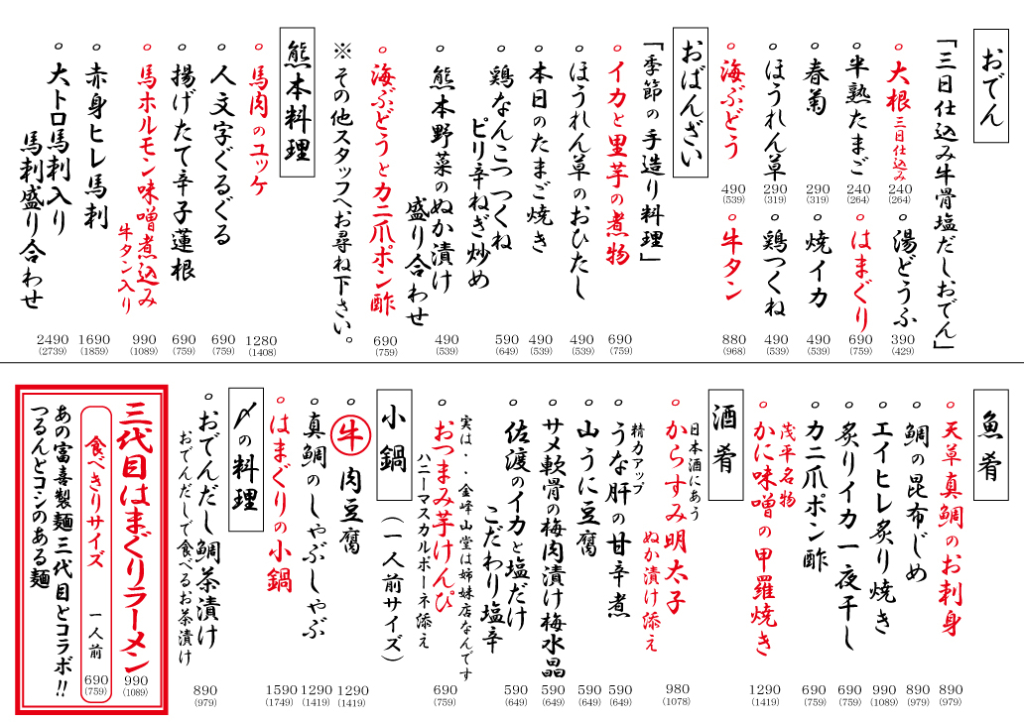 おでん
「三日仕込み牛骨塩だしおでん」
大根 三日仕込み
240
(264)
湯どうふ
390
(429)
半熟たまご
240
(264)
はまぐり
690
(759)
春菊
290
(319)
焼イカ
490
(539)
ほうれん草
290
(319)
鶏つくね
490
(539)
海ぶどう
490
(539)
牛タン
880
(968)
おばんざい
「季節の手造り料理」
イカと里芋の煮物
690
(759)
ほうれん草のおひたし
490
(539)
本日のたまご焼き
490
(539)
鶏なんこつつくね
ピリ辛ねぎ炒め
590
(649)
熊本野菜のぬか漬け
盛り合わせ
490
(539)
海ぶどうとカニ爪ポン酢
690
(759)
※その他スタッフへお尋ね下さい。
熊本料理
馬肉のユッケ
1280
(1408)
人文字ぐるぐる
690
(759)
揚げたて辛子蓮根
690
(759)
馬ホルモン味噌煮込み
牛タン入り
990
(1089)
赤身ヒレ馬刺
1690
(1859)
大トロ馬刺入り
馬刺盛り合わせ
2490
(2739)
魚肴
天草真鯛のお刺身
890
(979)
鯛の昆布じめ
890
(979)
エイヒレ炙り焼き
990
(1089)
炙りイカ一夜干し
690
(759)
カニ爪ポン酢
690
(759)
茂平名物
かに味噌の甲羅焼き
1290
(1419)
酒肴
日本酒にあう
からすみ明太子
ぬか漬け添え
980
(1078)
精力アップ
うな肝の甘辛煮
590
(649)
山うに豆腐
590
(649)
サメ軟骨の梅肉漬け梅水晶
590
(649)
佐渡のイカと塩だけ
こだわり塩辛
590
(649)
実は・・金峰山堂は姉妹店なんです
おつまみ芋けんぴ
ハニーマスカルポーネ添え
690
(759)
小鍋
(一人前サイズ)
牛 肉豆腐
1290
(1419)
真鯛のしゃぶしゃぶ
1290
(1419)
はまぐりの小鍋
1590
(1749)
〆の料理
おでんだし鯛茶漬け
おでんだしで食べるお茶漬け
890
(979)
三代目はまぐりラーメン
990
(1089)
食べきりサイズ 一人前
690
(759)
あの富喜製麺三代目とコラボ!!
つるんとコシのある麺